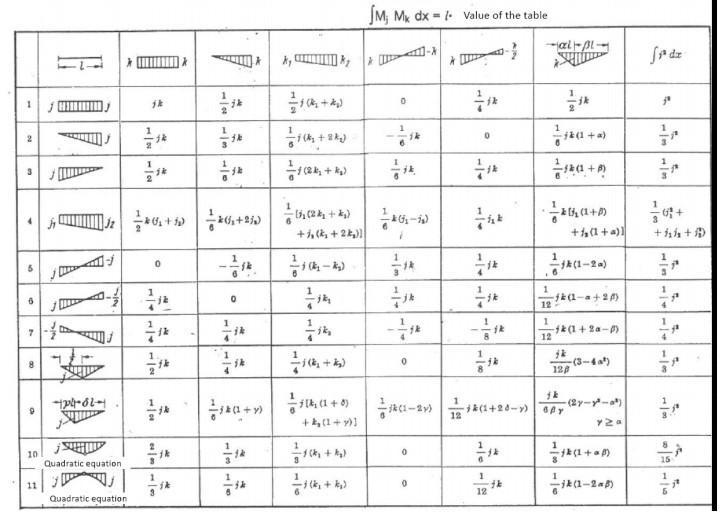 ∫Mj Mk dx = l· Value of the table
l k k k k₁ k₂ k -k k -k/2 αl βl k ∫j² dx
1 j j jk 1/2 jk 1/2 j(k₁ + k₂) 0 1/4 jk 1/2 jk j²
2 j 1/2 jk 1/3 jk 1/6 j(k₁ + 2k₂) -1/6 jk 0 1/6 jk(1 + α) 1/3 j²
3 j 1/2 jk 1/6 jk 1/6 j(2k₁ + k₂) 1/6 jk 1/4 jk 1/6 jk(1 + β) 1/3 j²
4 j₁ j₂ 1/2 k(j₁ + j₂) 1/6 k(j₁ + 2j₂) 1/6 [j₁(2k₁ + k₂) 1/6 k(j₁-j₂) 1/4 j₁k 1/6 k[j₁(1+β) 1/3 (j₁² +
+ j₂(k₁ + 2k₂)] + j₂(1 + α)] + j₁j₂ + j₂²)
5 j -j 0 -1/6 jk 1/6 j(k₁ - k₂) 1/3 jk 1/4 jk 1/6 jk(1-2α) 1/3 j²
6 j -j/2 1/4 jk 0 1/4 jk₁ 1/4 jk 1/4 jk 1/12 jk(1-α+2β) 1/4 j²
7 -j/2 j 1/4 jk 1/4 jk 1/4 jk₂ -1/4 jk -1/8 jk 1/12 jk(1+2α-β) 1/4 j²
8 j 1/2 jk 1/4 jk 1/4 j(k₁ + k₂) 0 1/8 jk jk/12β (3-4α²) 1/3 j²
9 γl δl j 1/2 jk 1/6 jk(1 + γ) 1/6 j[k₁(1 + δ) 1/6 jk(1-2γ) 1/12 jk(1+2δ-γ) jk/6βγ (2γ-γ²-α²) 1/3 j²
+ k₂(1 + γ)] γ ≥ α
10 j 2/3 jk 1/3 jk 1/3 j(k₁ + k₂) 0 1/6 jk 1/3 jk(1 + αβ) 8/15 j²
Quadratic equation
11 j j 1/3 jk 1/6 jk 1/6 j(k₁ + k₂) 0 1/12 jk 1/6 jk(1-2αβ) 1/5 j²
Quadratic equation